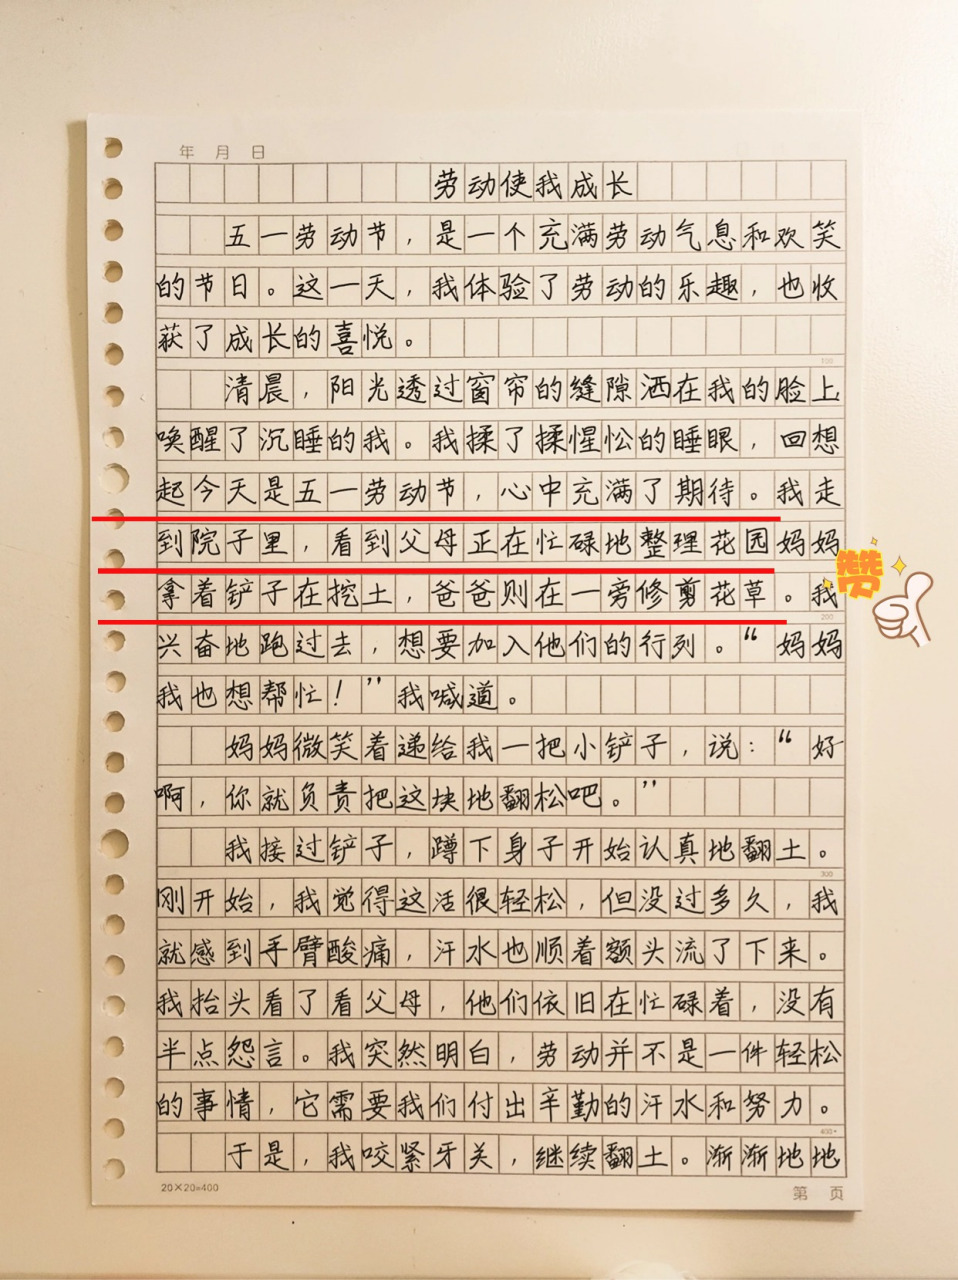 年 月 日
劳动使我成长
五一劳动节，是一个充满劳动气息和欢笑
的节日。这一天，我体验了劳动的乐趣，也收
获了成长的喜悦。
100
清晨，阳光透过窗帘的缝隙洒在我的脸上
唤醒了沉睡的我。我揉了揉惺忪的睡眼，回想
起今天是五一劳动节，心中充满了期待。我走
到院子里，看到父母正在忙碌地整理花园妈妈
赞
拿着铲子在挖土，爸爸则在一旁修剪花草。我
200
兴奋地跑过去，想要加入他们的行列。“妈妈
我也想帮忙！”我喊道。
妈妈微笑着递给我一把小铲子，说：“好
啊，你就负责把这块地翻松吧。”
我接过铲子，蹲下身子开始认真地翻土。
300
刚开始，我觉得这活很轻松，但没过多久，我
就感到手臂酸痛，汗水也顺着额头流了下来。
我抬头看了看父母，他们依旧在忙碌着，没有
半点怨言。我突然明白，劳动并不是一件轻松
的事情，它需要我们付出辛勤的汗水和努力。
400
于是，我咬紧牙关，继续翻土。渐渐地地
20×20=400
第 页